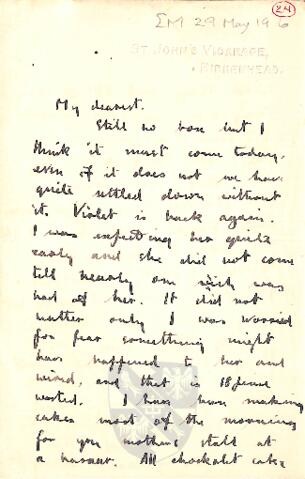 ΣM 29 May 196
24
ST JOHN'S VICARAGE,
BIRKENHEAD.
My dearest.
Still no box but I
think it must come today,
even if it does not we have
quite settled down without
it. Violet is back again.
I was expecting her quite
early and she did not come
till nearly one which was
bad of her. It did not
matter only I was worried
for fear something might
have happened to her and
, and that is 
wasted. I have been making
cakes most of the morning
for you mothers stall at
a bazaar. All chockolet cake